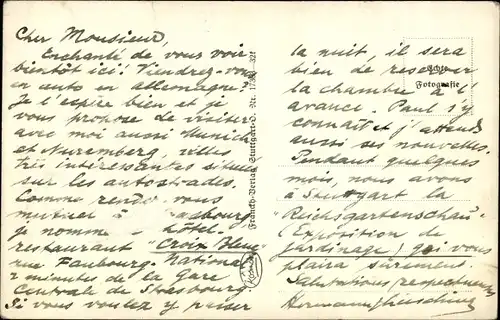 Cher Monsieur,
Enchanté de vous voir
bientôt ici! Viendrez-vous
en auto en allemagne?
Je l'espère bien et je
vous propose de visiter
avec moi aussi Munich
et Nuremberg, villes
très intéressantes situées
sur les autostrades.
Comme rendez-vous
à
je nomme hôtel-
restaurant "Croix Bleue"
rue Faubourg-National
2 minutes de la Gare
Centrale de Strasbourg
Si vous voulez y passer
Franckh-Verlag Stuttgart-O. Nr.
la nuit, il sera
bien de reserver
la chambre à l'
avance. Paul s'y
connaît et j'attends
aussi ses nouvelles.
Pendant quelques
mois, nous avons
à Stuttgart la
"Reichsgartenschau"
(Exposition de
Jardinage) qui vous
plaira sûrement.
Salutations respectueuses
Hermann
Echte
Fotografie